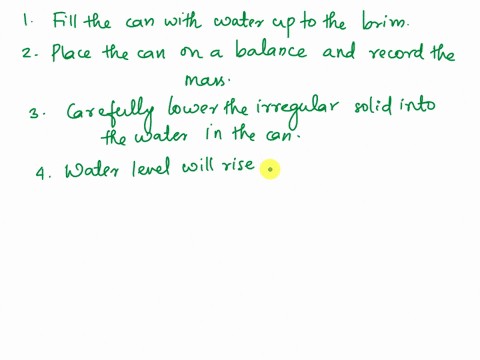 1. Fill the can with water up to the brim.
2. Place the can on a balance and record the
mass.
3. Carefully lower the irregular solid into
the water in the can.
4. Water level will rise